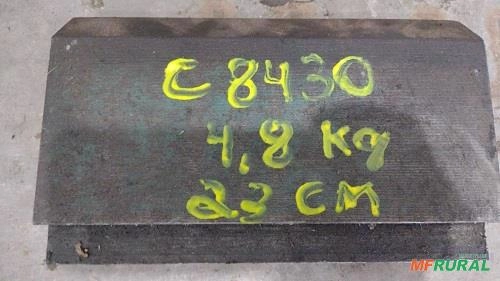 C 8430
4,8 Kg
23 CM
MFRURAL